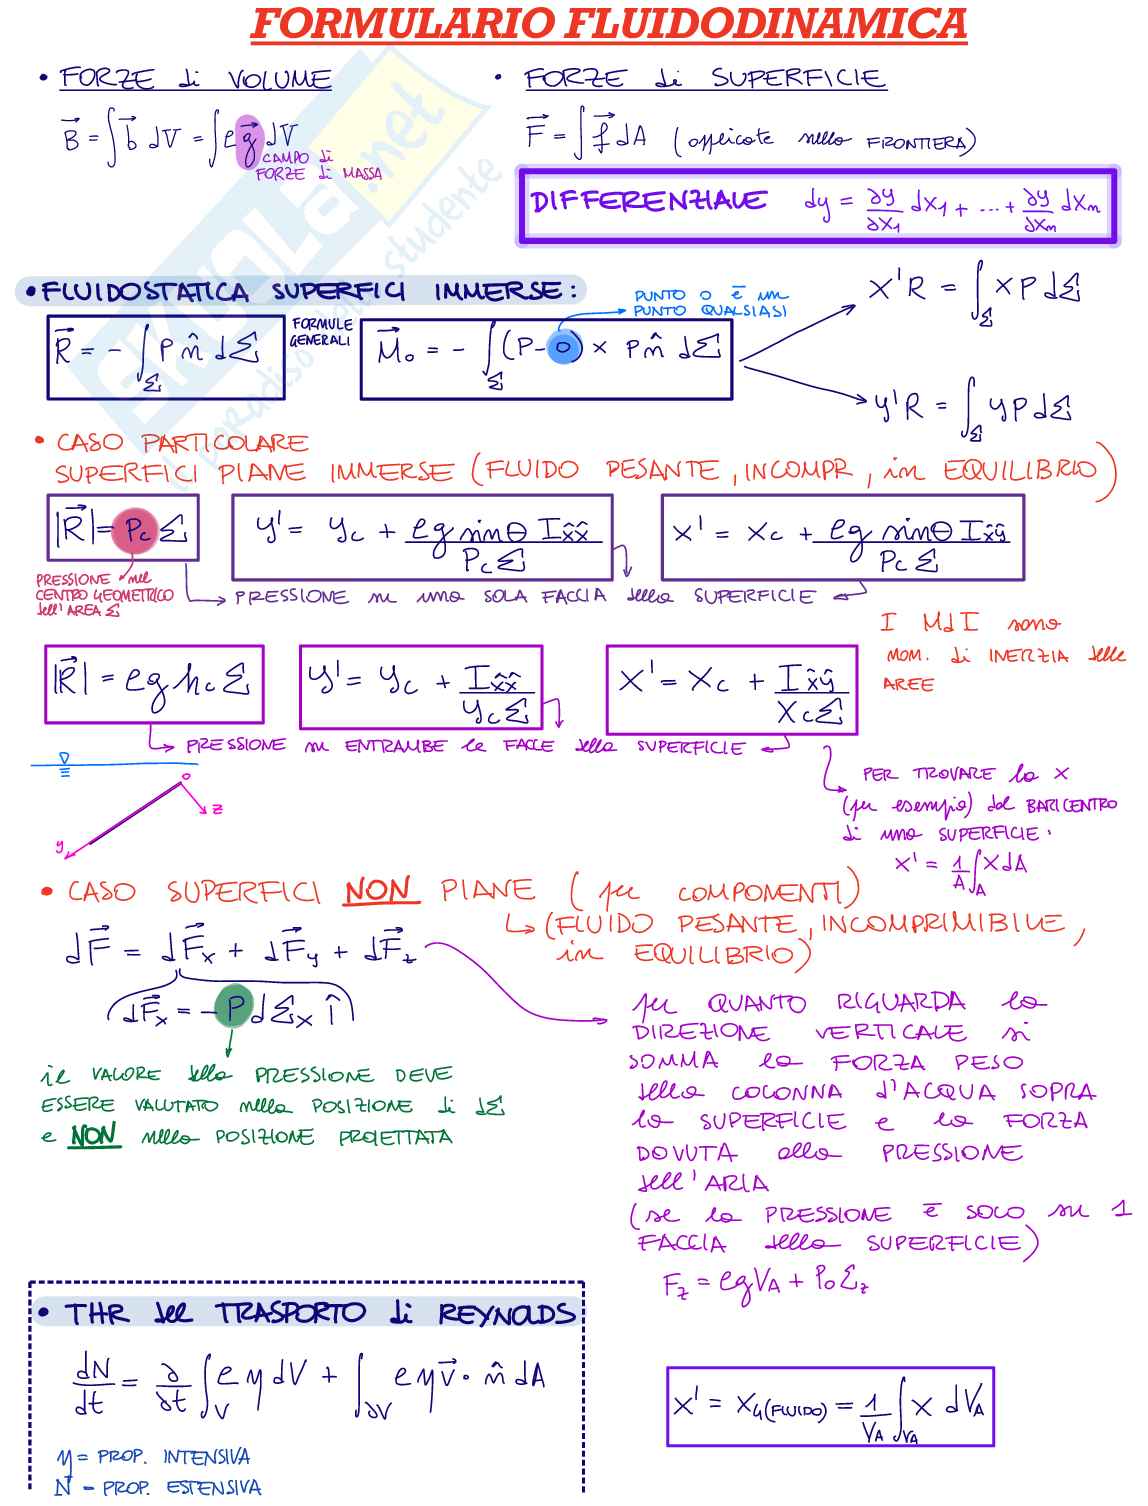 FORMULARIO FLUIDODINAMICA
• FORZE di VOLUME
B⃗ = ∫ b⃗ dV = ∫ ρ g⃗ dV
CAMPO di
FORZE di MASSA
• FORZE di SUPERFICIE
F⃗ = ∫ f⃗ dA (applicate nella FRONTIERA)
DIFFERENZIALE dy = ∂y/∂x₁ dx₁ + ... + ∂y/∂xₘ dxₘ
• FLUIDOSTATICA SUPERFICI IMMERSE:
PUNTO O È un
PUNTO QUALSIASI
R⃗ = - ∫_Σ P n̂ dΣ
FORMULE
GENERALI
M⃗₀ = - ∫_Σ (P-O) × P n̂ dΣ
x'R = ∫_Σ x P dΣ
y'R = ∫_Σ y P dΣ
• CASO PARTICOLARE
SUPERFICI PIANE IMMERSE (FLUIDO PESANTE, INCOMPR, in EQUILIBRIO)
|R⃗| = Pc Σ
y' = yc + ρg sinθ Ix̂x̂ / Pc Σ
x' = xc + ρg sinθ Ix̂ŷ / Pc Σ
PRESSIONE nel
CENTRO GEOMETRICO
dell'AREA Σ
PRESSIONE su una SOLA FACCIA della SUPERFICIE
I MdI sono
MOM. di INERZIA delle
AREE
|R⃗| = ρg hc Σ
y' = yc + Ix̂x̂ / yc Σ
x' = xc + Ix̂ŷ / xc Σ
PRESSIONE su ENTRAMBE le FACCE della SUPERFICIE
O
z
y
PER TROVARE la x
(per esempio) del BARICENTRO
di una SUPERFICIE.
x' = 1/A ∫_A x dA
• CASO SUPERFICI NON PIANE (per COMPONENTI)
(FLUIDO PESANTE, INCOMPRIMIBILE,
in EQUILIBRIO)
dF⃗ = dF⃗x + dF⃗y + dF⃗z
dF⃗x = - P dΣx î
il VALORE della PRESSIONE DEVE
ESSERE VALUTATO nella POSIZIONE di dΣ
e NON nella POSIZIONE PROIETTATA
per QUANTO RIGUARDA la
DIREZIONE VERTICALE si
SOMMA la FORZA PESO
della COLONNA d'ACQUA SOPRA
la SUPERFICIE e la FORZA
DOVUTA alla PRESSIONE
dell'ARIA
(se la PRESSIONE È SOLO su 1
FACCIA della SUPERFICIE)
Fz = ρg VA + P₀ Σz
• THR del TRASPORTO di REYNOLDS
dN/dt = ∂/∂t ∫_V ρ η dV + ∫_∂V ρ η v⃗ · n̂ dA
η = PROP. INTENSIVA
N = PROP. ESTENSIVA
x' = xG(FLUIDO) = 1/VA ∫_VA x dVA